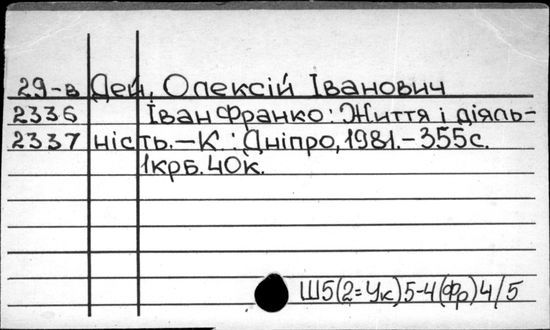 29-в Дей, Олексій Іванович
2336 Іван Франко: Життя і діяль-
2337 ність.-К.: Дніпро, 1981.-355с.
1крб.40к.
Ш5(2=Ук)5-4(Фр)4/5